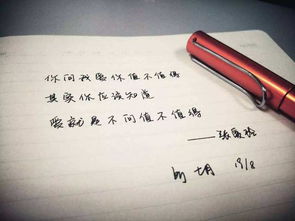 你问我爱你值不值得
其实你应该知道
爱就是不问值不值得
——张爱玲
by 七月